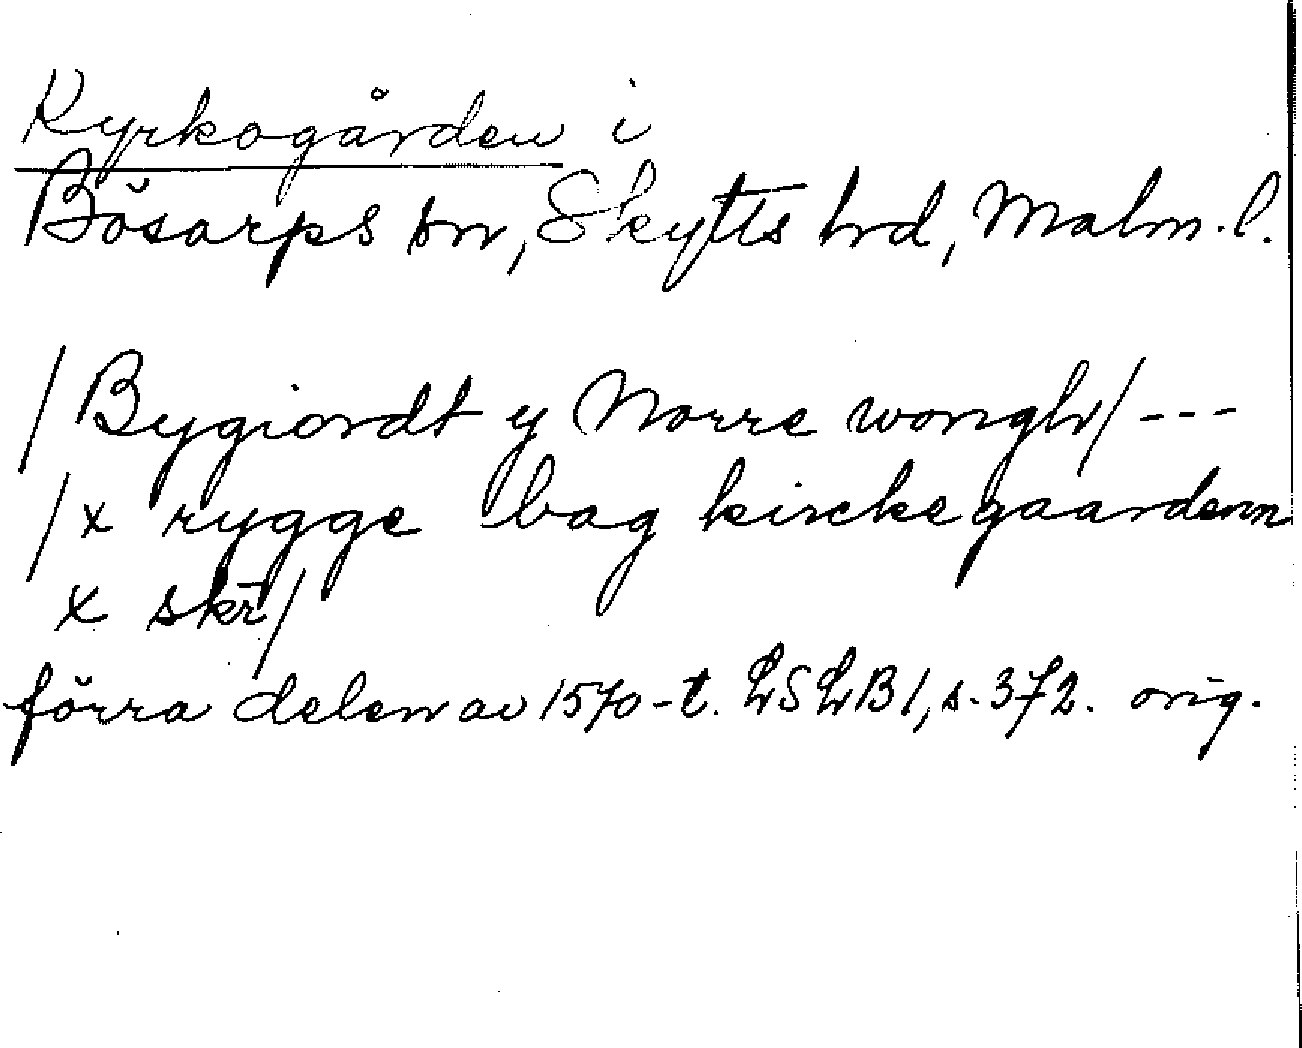 Kyrkogården i
Bösarps sn, Skytts hrd, Malm. l.
/Bygiordt y Norre wongh/ ---
/x rygge bag kirckegaardenn
x skr/
förra delen av 1570-t. LSLB 1, s. 372. orig.